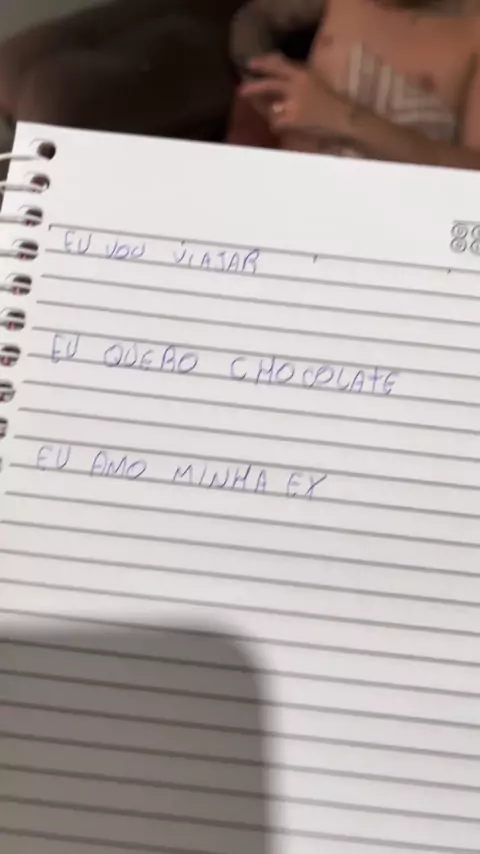 EU VOU VIAJAR
EU QUERO CHOCOLATE
EU AMO MINHA EX